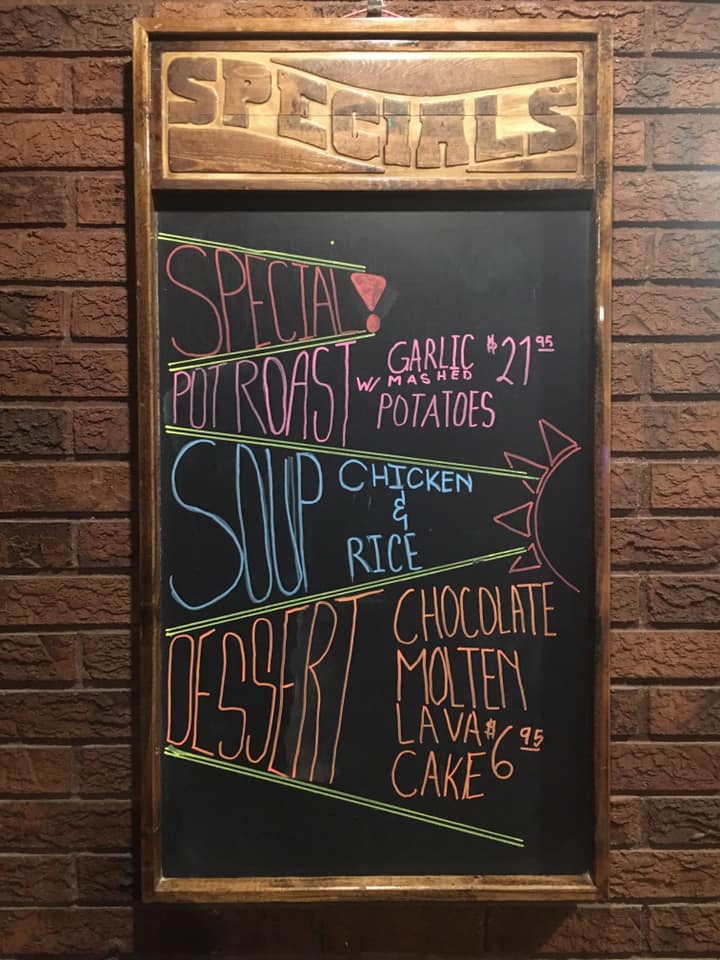 SPECIALS
SPECIAL!
POT ROAST W/ GARLIC MASHED POTATOES $21⁹⁵
SOUP
CHICKEN
&
RICE
DESSERT
CHOCOLATE
MOLTEN
LAVA
CAKE $6⁹⁵